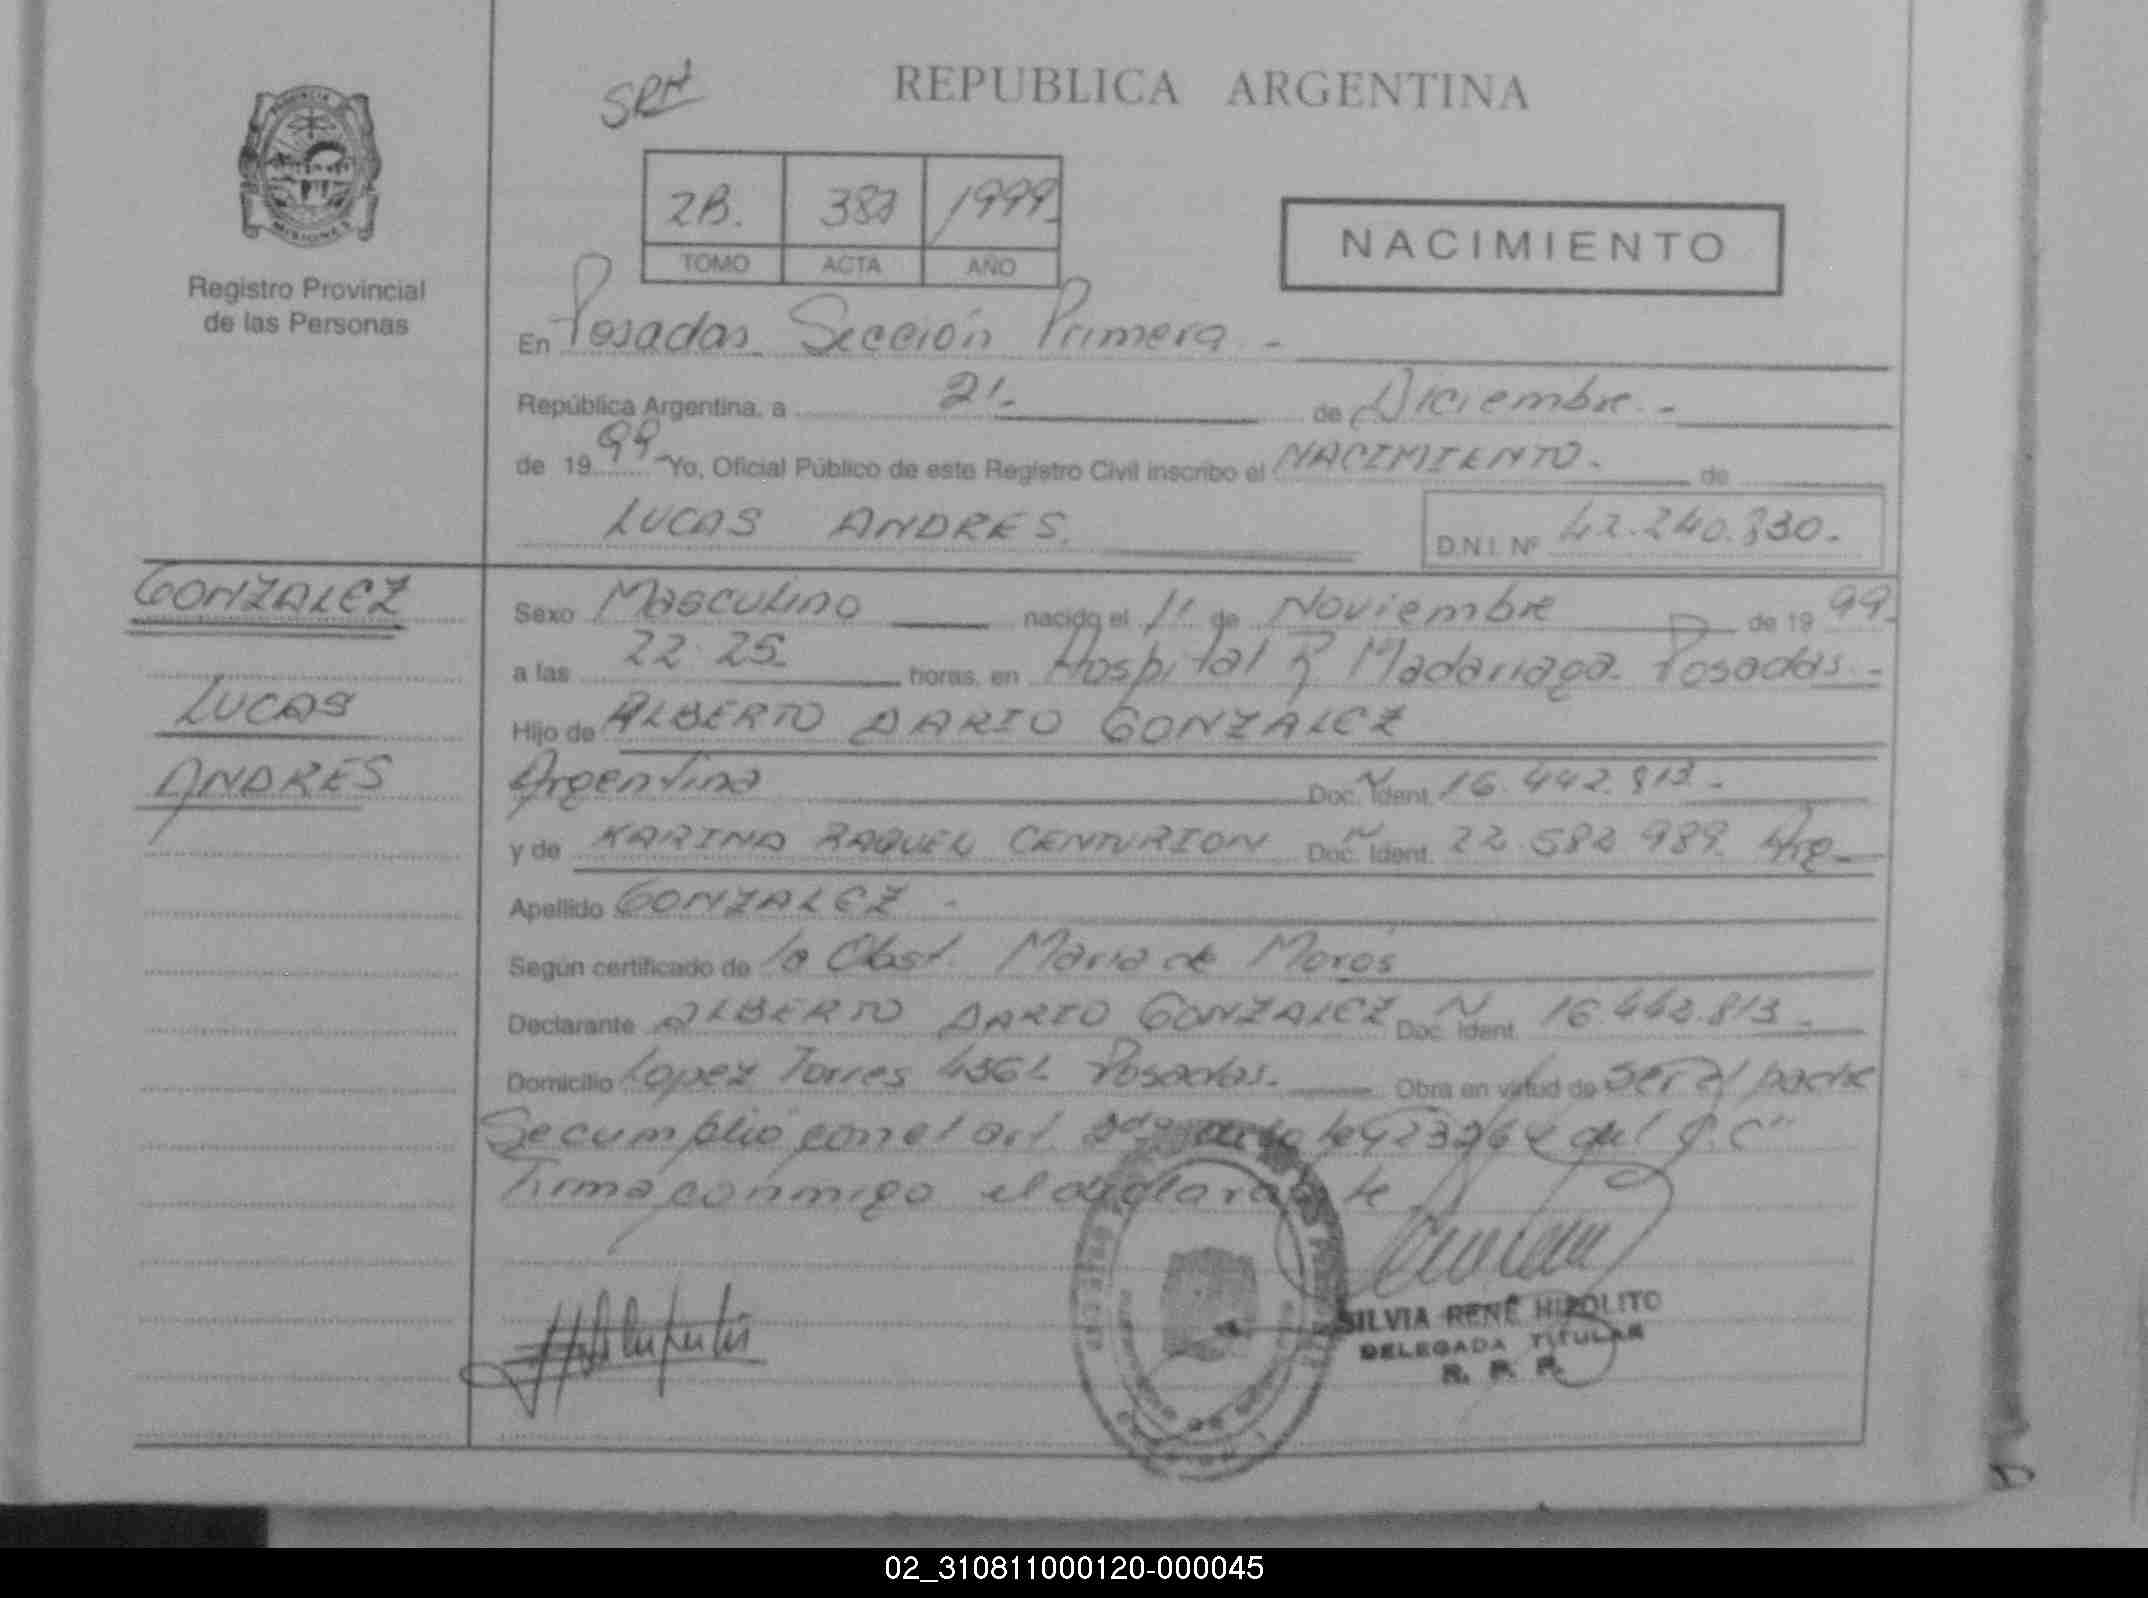 SRH
REPUBLICA ARGENTINA
2B. 383 1999-
TOMO ACTA AÑO
NACIMIENTO
Registro Provincial
de las Personas
En Posadas Sección Primera -
República Argentina, a 21- de Diciembre. -
de 19 99 - Yo, Oficial Público de este Registro Civil inscribo el NACIMIENTO. - de
LUCAS ANDRES. D.N.I. Nº 42.240.330.-
GONZALEZ
LUCAS
ANDRES
Sexo Masculino nacido el 11 de Noviembre de 19 99-
a las 22.25 horas, en Hospital R Madariaga. Posadas. -
Hijo de ALBERTO DARIO GONZALEZ
Argentina Doc. Ident. 16.442.813. -
y de KARINA RAQUEL CENTURION Doc. Ident. 22.582.989. Arg-
Apellido GONZALEZ -
Según certificado de la Obst. Maria de Moros
Declarante ALBERTO DARIO GONZALEZ Doc. Ident. 16.442.813. -
Domicilio Lopez Torres 4361 Posadas. Obra en virtud de ser el padre
Se cumplio con el art. 2do ley 23264 del C.C"
Firma conmigo el declarante
SILVIA RENÉ HIPOLITO
DELEGADA TITULAR
R. P. P.
02_310811000120-000045